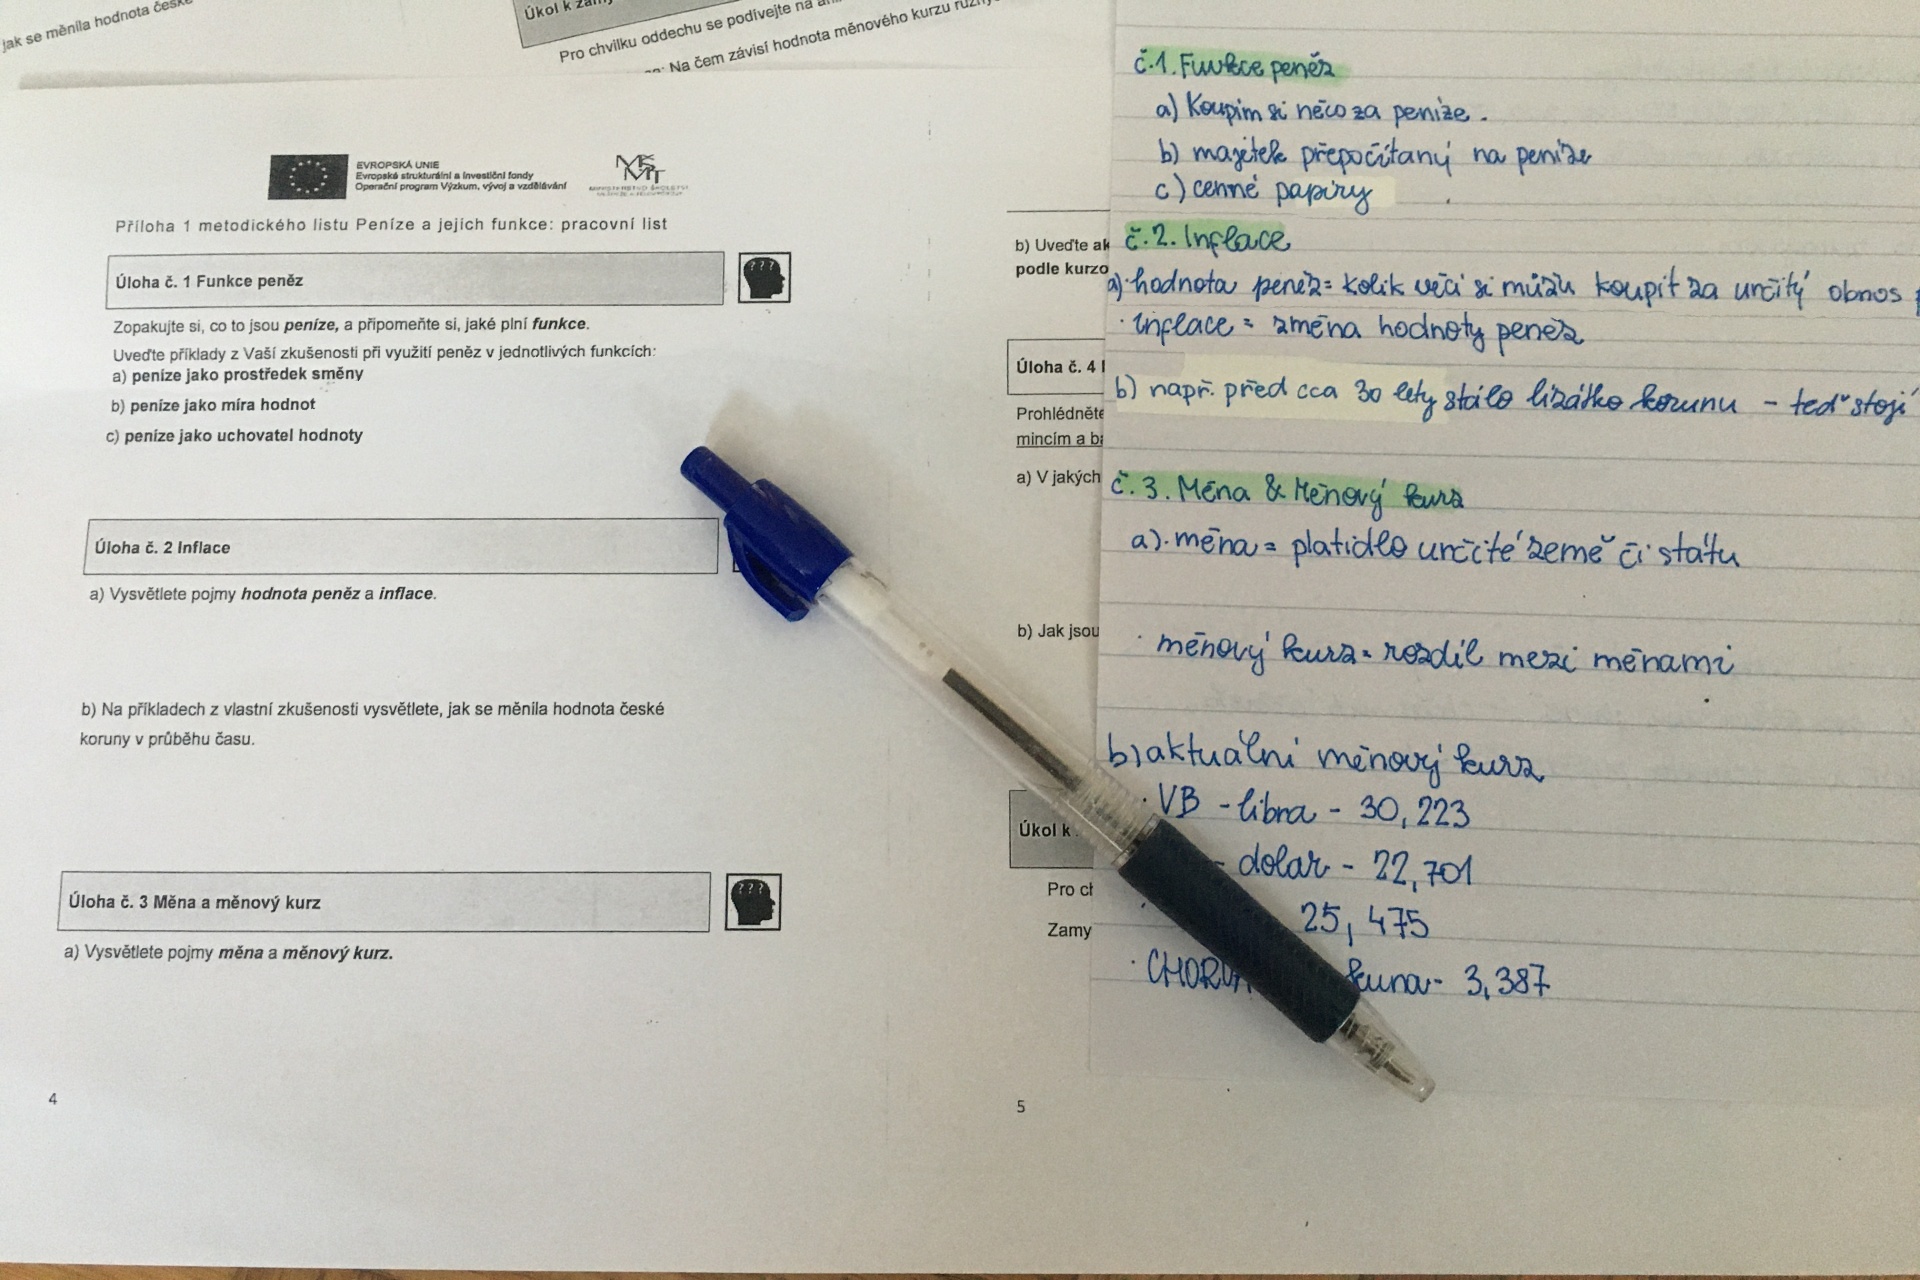 jak se měnila hodnota české
Úkol k
Pro chvilku oddechu se podívejte na
Na čem závisí hodnota měnového kurzu
EVROPSKÁ UNIE
Evropské strukturální a investiční fondy
Operační program Výzkum, vývoj a vzdělávání
MINISTERSTVO ŠKOLSTVÍ
Příloha 1 metodického listu Peníze a jejich funkce: pracovní list
Úloha č. 1 Funkce peněz
???
Zopakujte si, co to jsou peníze, a připomeňte si, jaké plní funkce.
Uveďte příklady z Vaší zkušenosti při využití peněz v jednotlivých funkcích:
a) peníze jako prostředek směny
b) peníze jako míra hodnot
c) peníze jako uchovatel hodnoty
Úloha č. 2 Inflace
a) Vysvětlete pojmy hodnota peněz a inflace.
b) Na příkladech z vlastní zkušenosti vysvětlete, jak se měnila hodnota české
koruny v průběhu času.
Úloha č. 3 Měna a měnový kurz
???
a) Vysvětlete pojmy měna a měnový kurz.
4
b) Uveďte
podle
Úloha č. 4
Prohlédněte
mincím a
a) V jakých
b) Jak jsou
Úkol k
Pro
5
č.1. Funkce peněz
a) Koupím si něco za peníze.
b) majetek přepočítaný na peníze
c) cenné papíry
č.2. Inflace
a) hodnota peněz = kolik věcí si můžu koupit za určitý obnos
· inflace = změna hodnoty peněz
b) např. před cca 30 lety stálo lízátko korunu - teď stojí
č.3. Měna & Měnový kurz
a) · měna = platidlo určité země či státu
· měnový kurz = rozdíl mezi měnami
b) aktuální měnový kurz
· VB - libra - 30,223
- dolar - 22,701
25,475
· kuna - 3,387